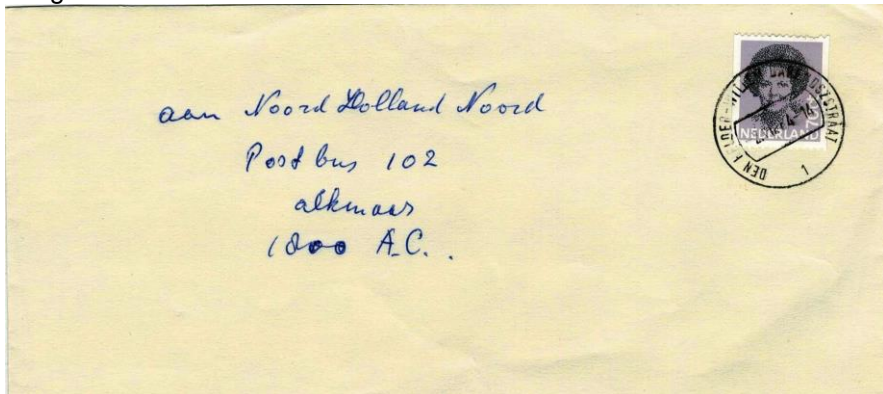 aan Noord Holland Noord
Postbus 102
alkmaar
1800 A.C..
70
NEDERLAND
DEN HELDER-WILLEM BARENDSZSTRAAT
1